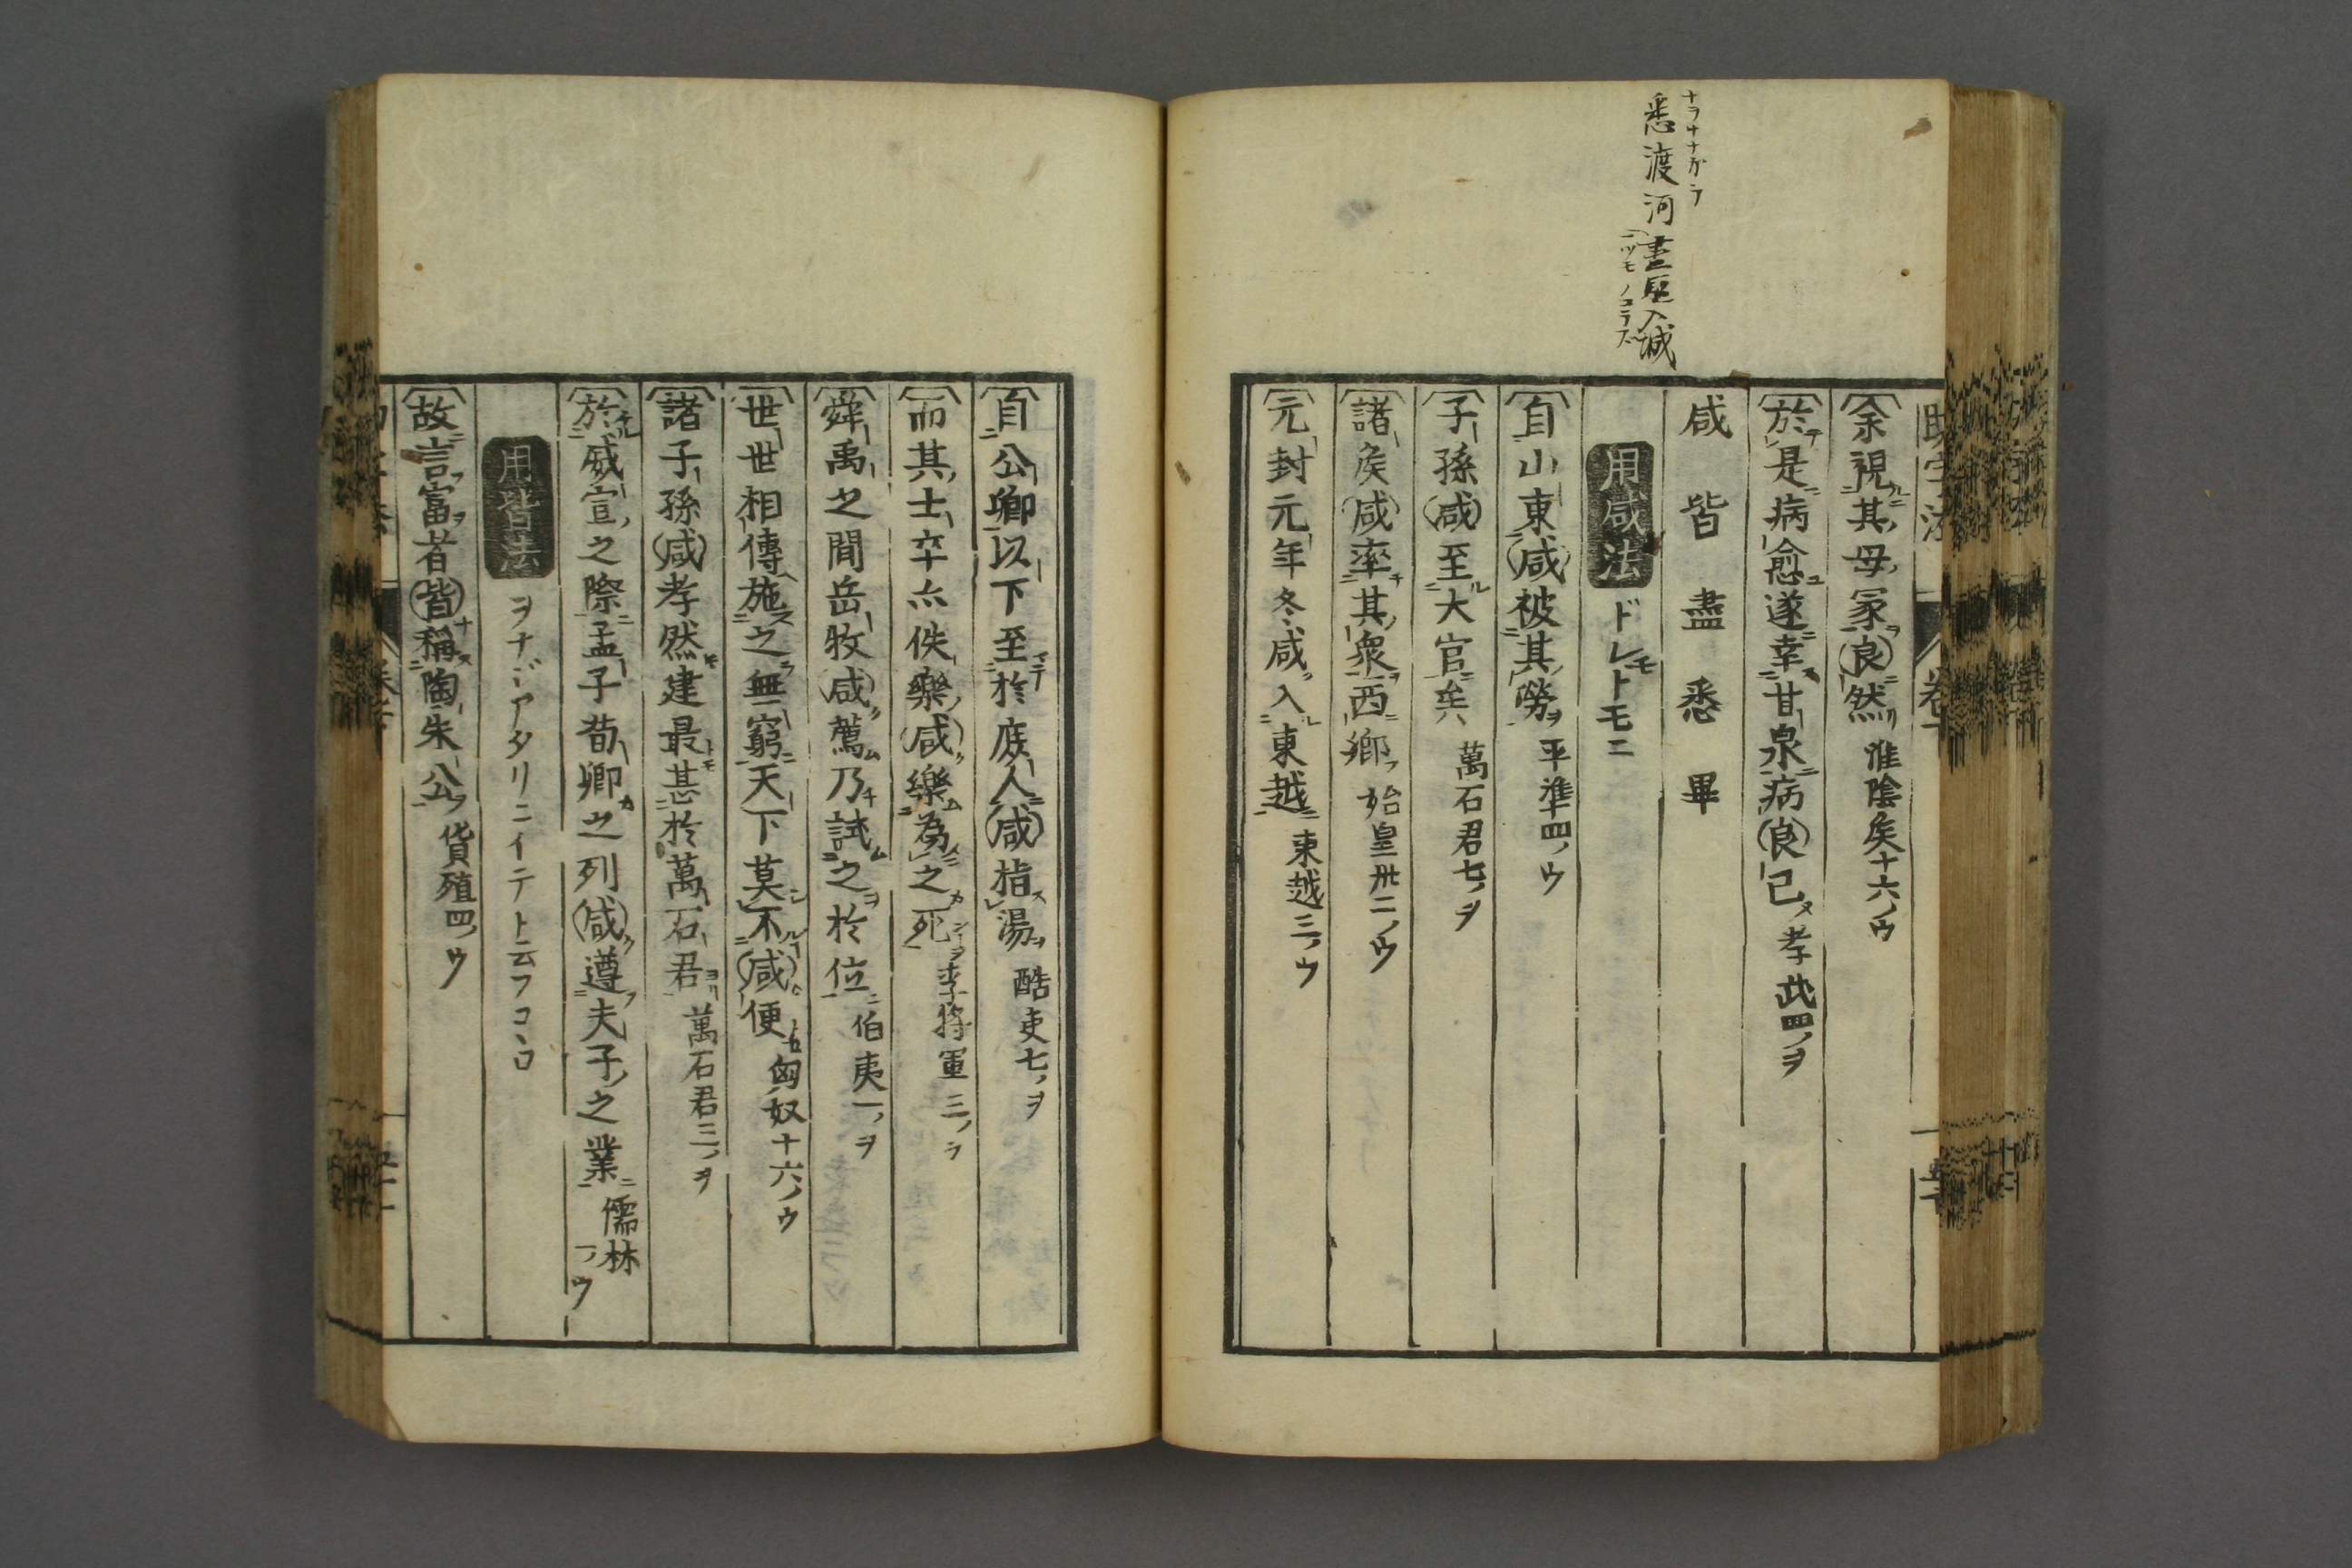 悉渡河盡 入城
余視其母冢良然 淮陰矦十六ノウ
於是病愈遂幸甘泉病良已 孝武四ノヲ
咸皆盡悉畢
用咸法 ドレモトモニ
自山東咸被其勞 平準四ノウ
子孫咸至大官矣 萬石君七ノヲ
諸矦咸率其衆西鄉 始皇卅二ノウ
元封元年冬咸入東越 東越三ノウ
自公卿以下至於庶人咸指湯 酷吏七ノヲ
而其士卒亦佚樂咸樂為之死 李將軍三ノヲ
舜禹之間岳牧咸薦乃試之於位 伯夷一ノヲ
世世相傳施之無窮天下莫不咸便 匈奴十六ノウ
諸子孫咸孝然建最甚於萬石君 萬石君三ノヲ
於威宣之際孟子荀卿之列咸遵夫子之業 儒林一ノウ
用皆法 ヲナジアタリニイテト云フコヽロ
故言富者皆稱陶朱公 貨殖四ノウ